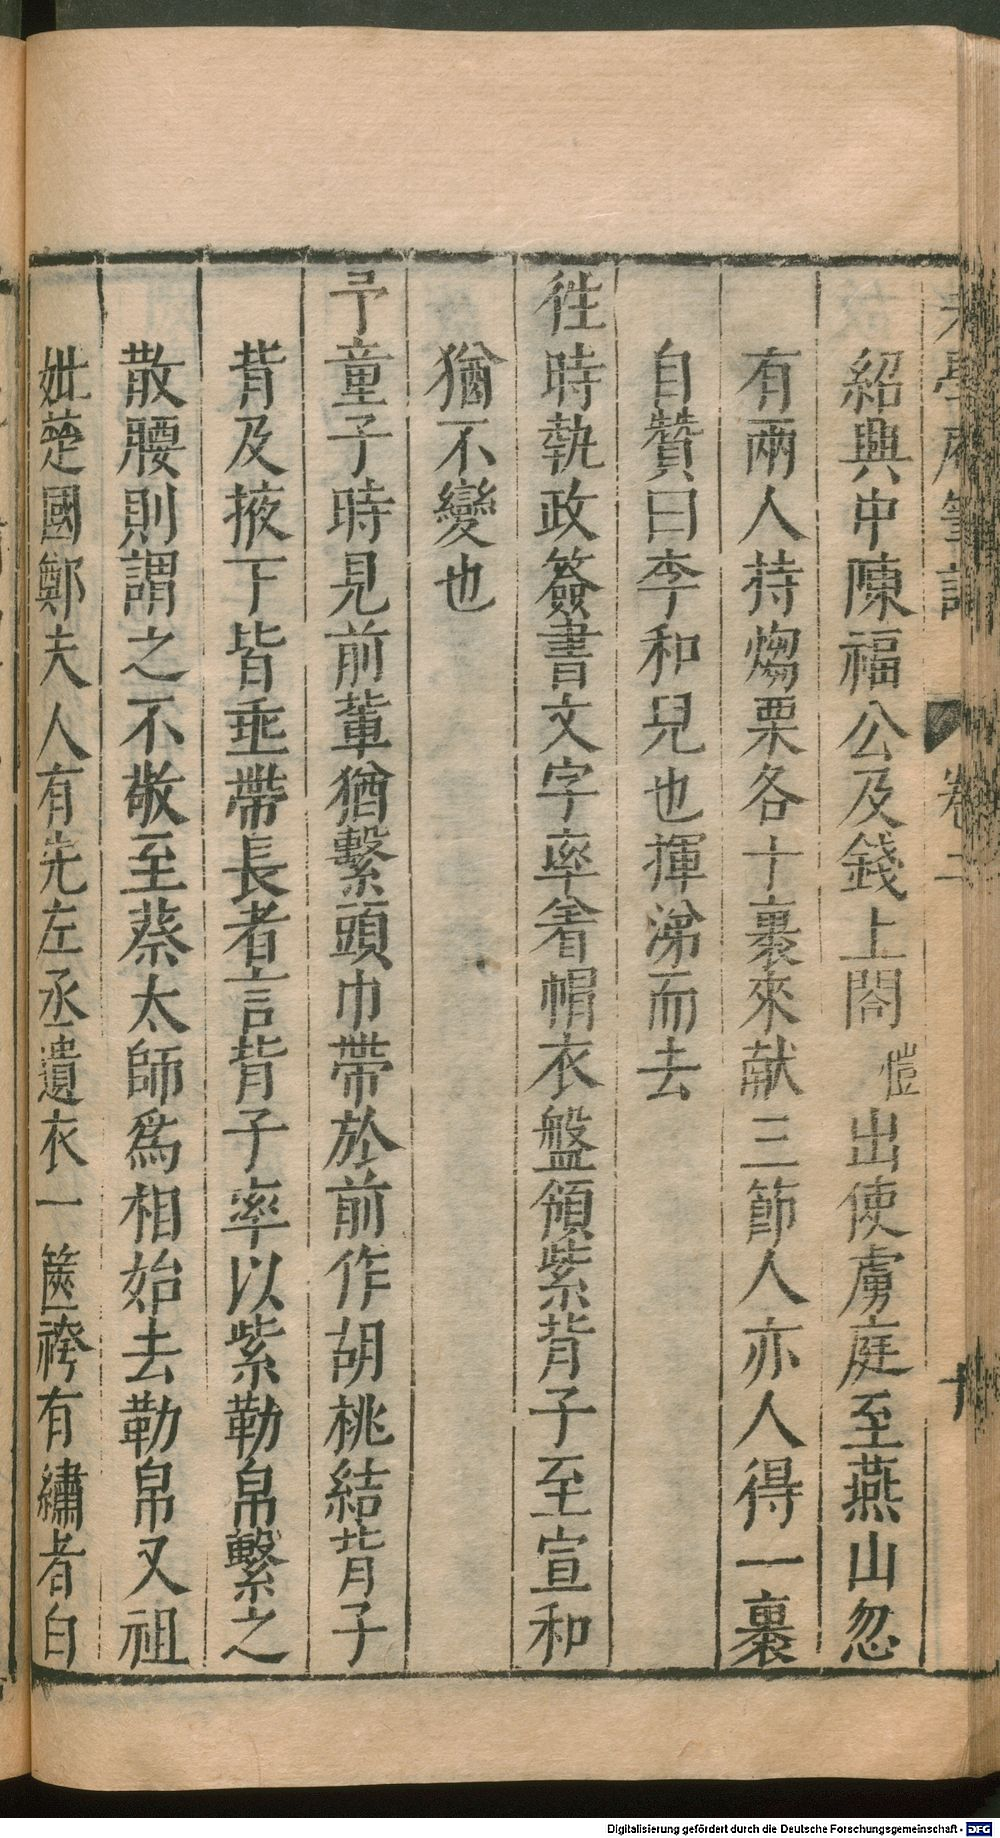 紹興中陳福公及錢上閤愷出使虜庭至燕山忽
有兩人持煼栗各十裹來献三節人亦人得一裹
自贊曰李和兒也揮涕而去
徃時執政簽書文字率著帽衣盤領紫背子至宣和
猶不變也
予童子時見前輩猶繫頭巾帶於前作胡桃結背子
背及掖下皆垂帶長者言背子率以紫勒帛繫之
散腰則謂之不敬至蔡太師爲相始去勒帛又祖
妣楚國鄭夫人有先左丞遺衣一篋袴有繡者白
Digitalisierung gefördert durch die Deutsche Forschungsgemeinschaft - DFG